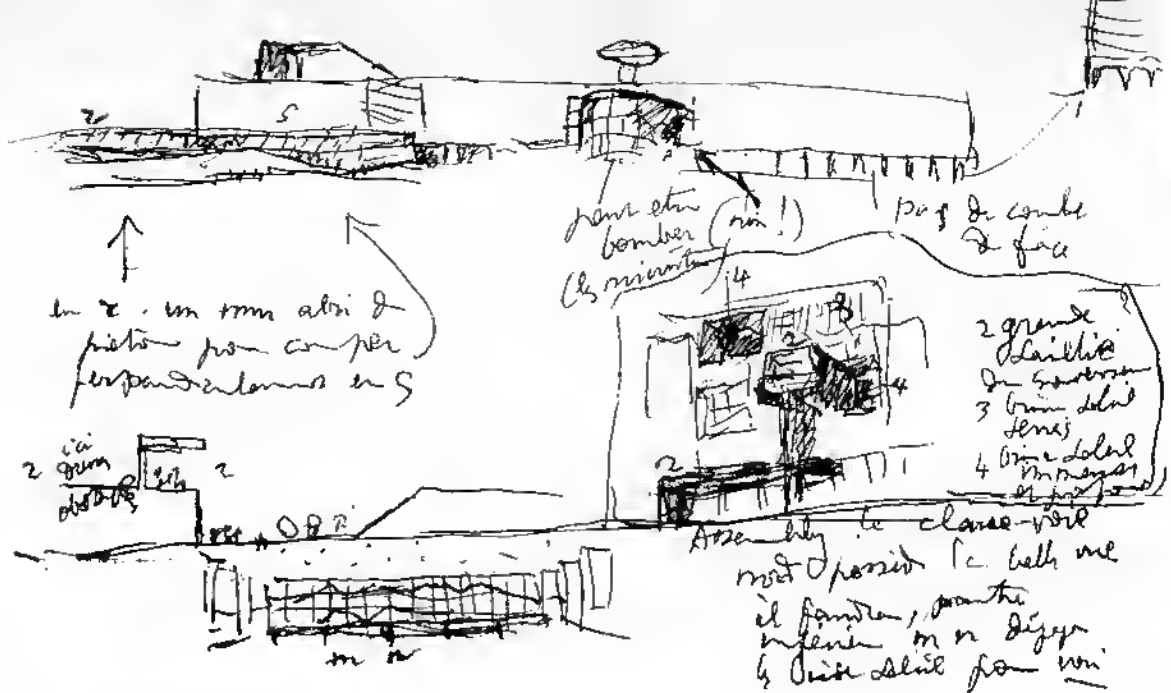 r
S
peut etre
bomber (non!)
4
pas de courbe
de face
en r. un mur abri de
piéton pour couper
perpendiculairement en S
3
2
4
2
2 grande
saillie
du Gouverneur
3 brise soleil
serrés
4 brise soleil
immenses
et profonds
2 ici
2
m n
Assembly le claire-voie
nord possède la belle vue
il faudra, poutre
inférieure m n dégager
les brise soleil pour voir